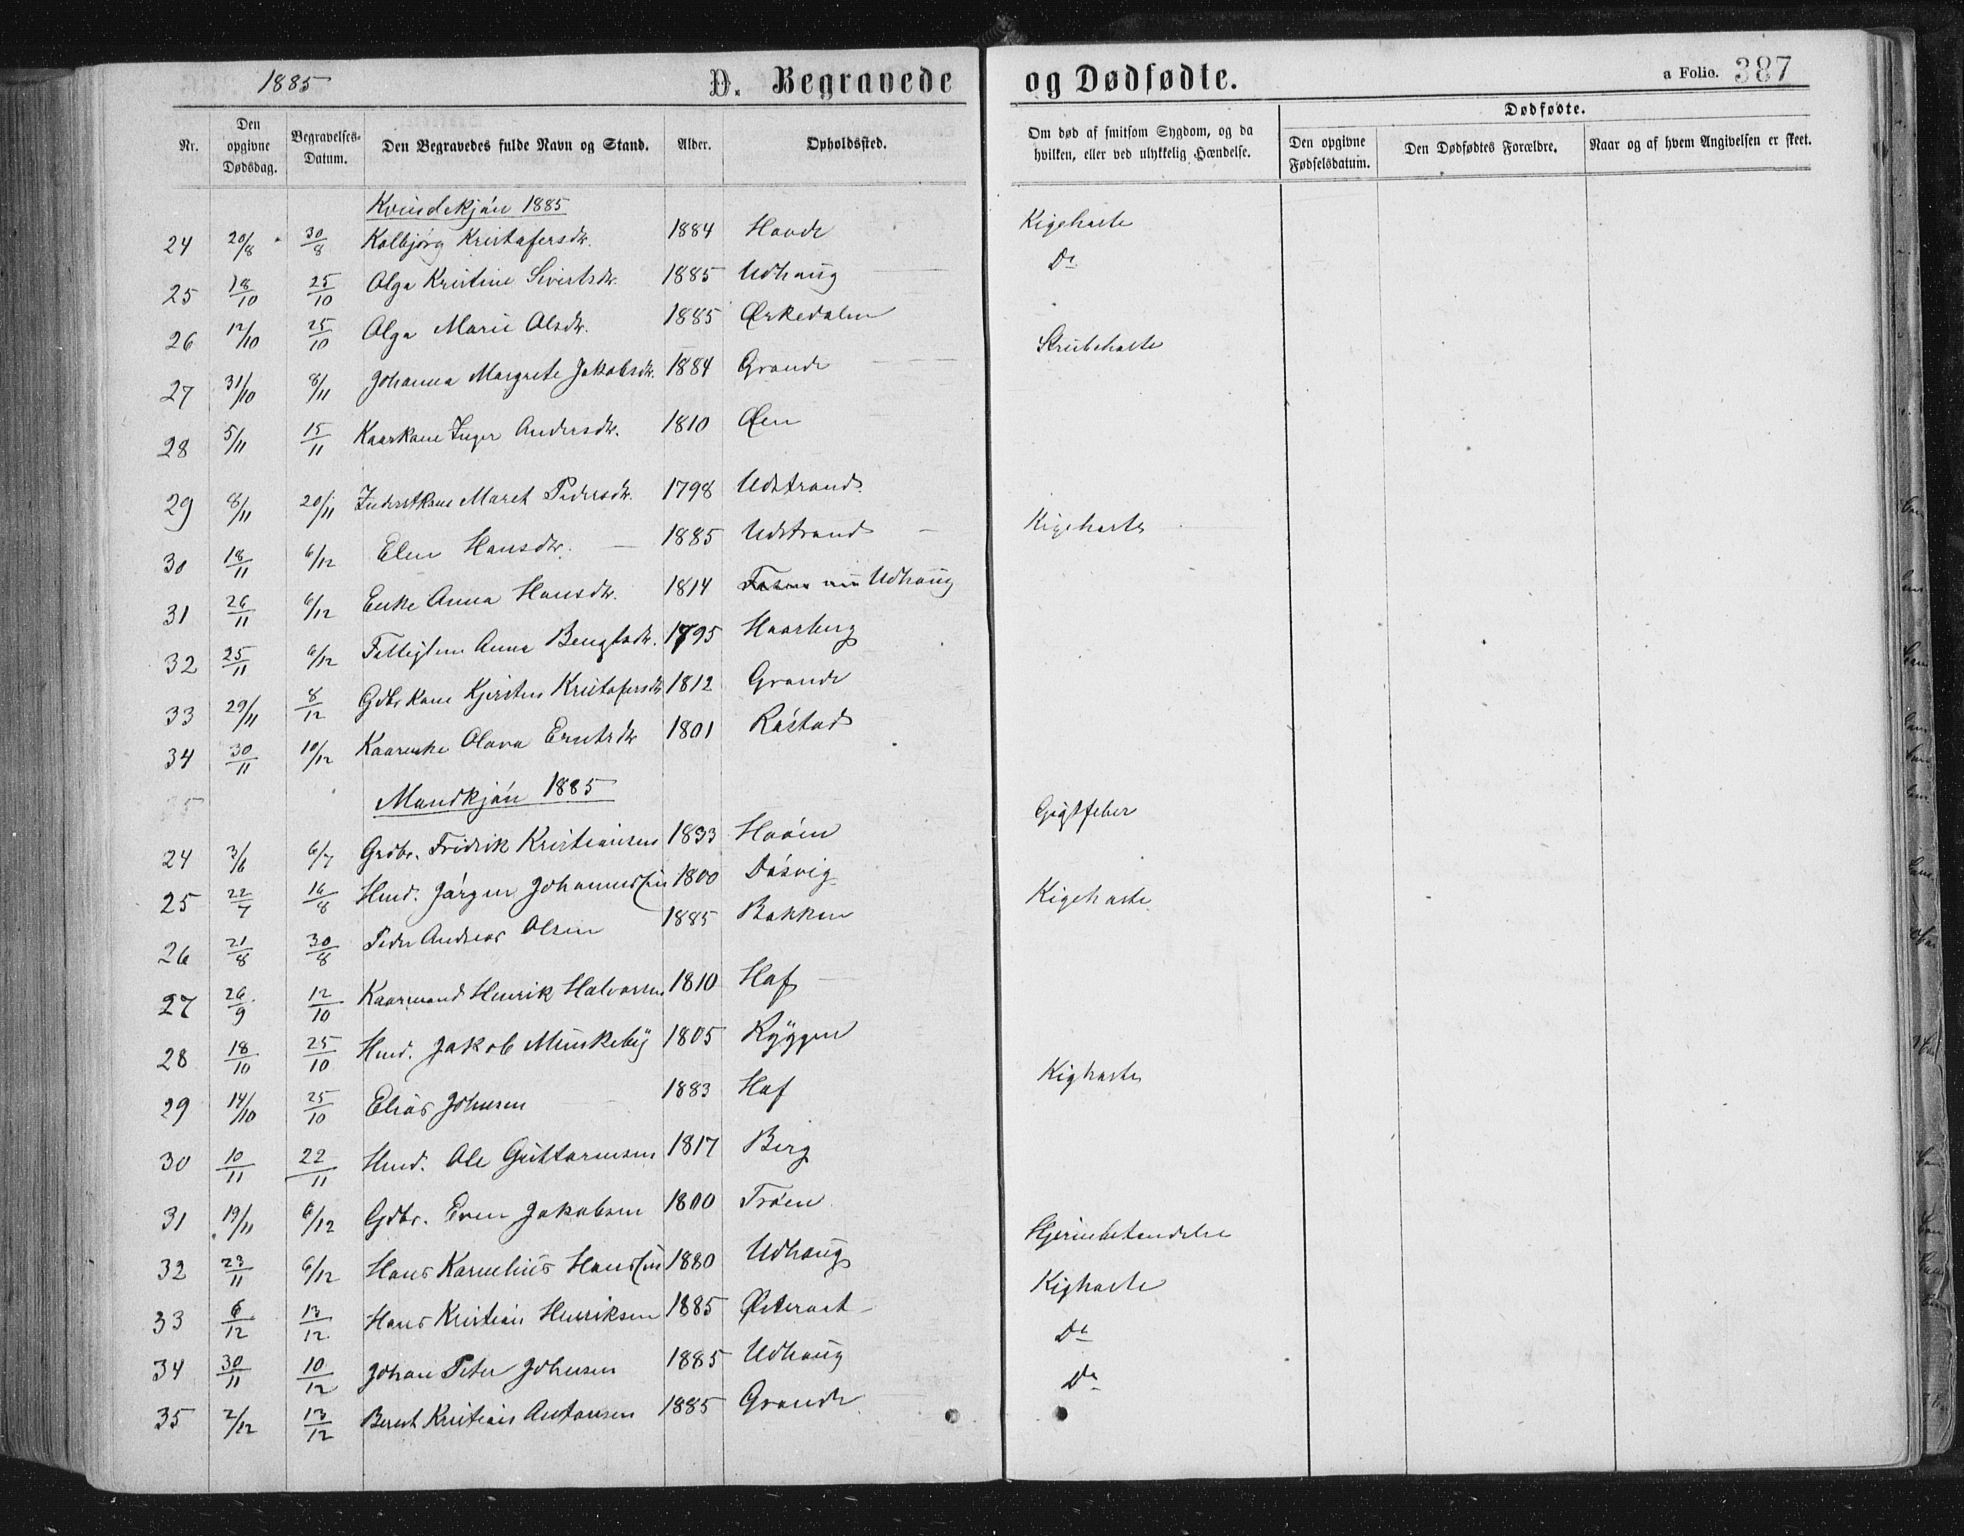 1885 D. Begravede og Dødfødte. a Folio. 387
Nr. Den opgivne Dødsdag. Begravelses-Datum. Den Begravedes fulde Navn og Stand. Alder. Opholdssted. Om død af smitsom Sygdom, og da hvilken, eller ved ulykkelig Hændelse. Dødfødte. Den opgivne Fødselsdatum. Den Dødfødtes Forældre. Naar og af hvem Angivelsen er skeet.
Kvindekjön 1885
24 20/8 30/8 Kolbjörg Kristofersdtr. 1884 Hovde Kigehoste
25 18/10 25/10 Olga Kristine Sivertsdtr. 1885 Udhaug Do
26 12/10 25/10 Olga Marie Olsdtr. 1885 Ørkedalen
27 31/10 8/11 Johanna Margrete Jakobsdtr. 1884 Grande Strubehoste
28 5/11 15/11 Kaarkone Inger Andersdtr. 1810 Øen
29 8/11 20/11 Inderstkone Maret Pedersdtr. 1798 Udstrand
30 18/11 6/12 Elen Hansdtr. 1885 Udstrand Kigehoste
31 26/11 6/12 Enke Anna Hansdtr. 1814 Udhaug
32 25/11 6/12 Fattiglem Anna Bengtsdtr. 1795 Haarberg
33 29/11 8/12 Gdbrkone Kjersten Kristofersdtr 1812 Grande
34 30/11 10/12 Kaarenke Olava Erntsdtr 1801 Röstad
35
Mandkjön 1885
24 3/6 6/7 Grdbr. Fridrik Kristiansen 1833 Hoöen Gigtfeber
25 22/7 16/8 Hmd. Jörgen Johannessen 1800 Dösvig
26 21/8 30/8 Peder Andreas Olsen 1885 Bakken Kigehoste
27 26/9 12/10 Kaarmand Henrik Halvorsen 1810 Hof
28 18/10 25/10 Hmd. Jakob Munkeby 1805 Ryggen
29 14/10 25/10 Elias Johnsen 1883 Hof Kighoste
30 10/11 22/11 Hmd. Ole Guttormsen 1817 Berg
31 19/11 6/12 Gdbr. Even Jakobsen 1800 Tröen
32 23/11 6/12 Hans Kornelius Hanssen 1880 Udhaug Hjernebetændelse
33 6/12 13/12 Hans Kristian Henriksen 1885 Østeraat Kighoste
34 30/11 10/12 Johan Peter Johnsen 1885 Udhaug Do
35 2/12 13/12 Berent Kristian Antonsen 1885 Grande Do